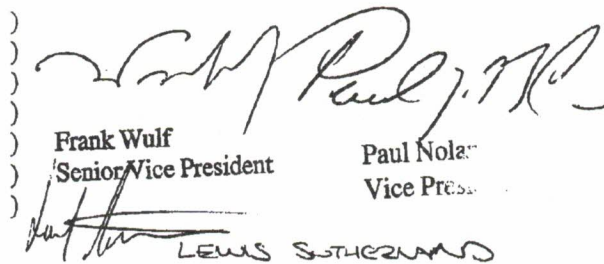 )
)
)
)
)
)
)
Paul J.
Frank Wulf
Senior Vice President
Paul Nolan
Vice Pres
LEWIS SUTHERLAND